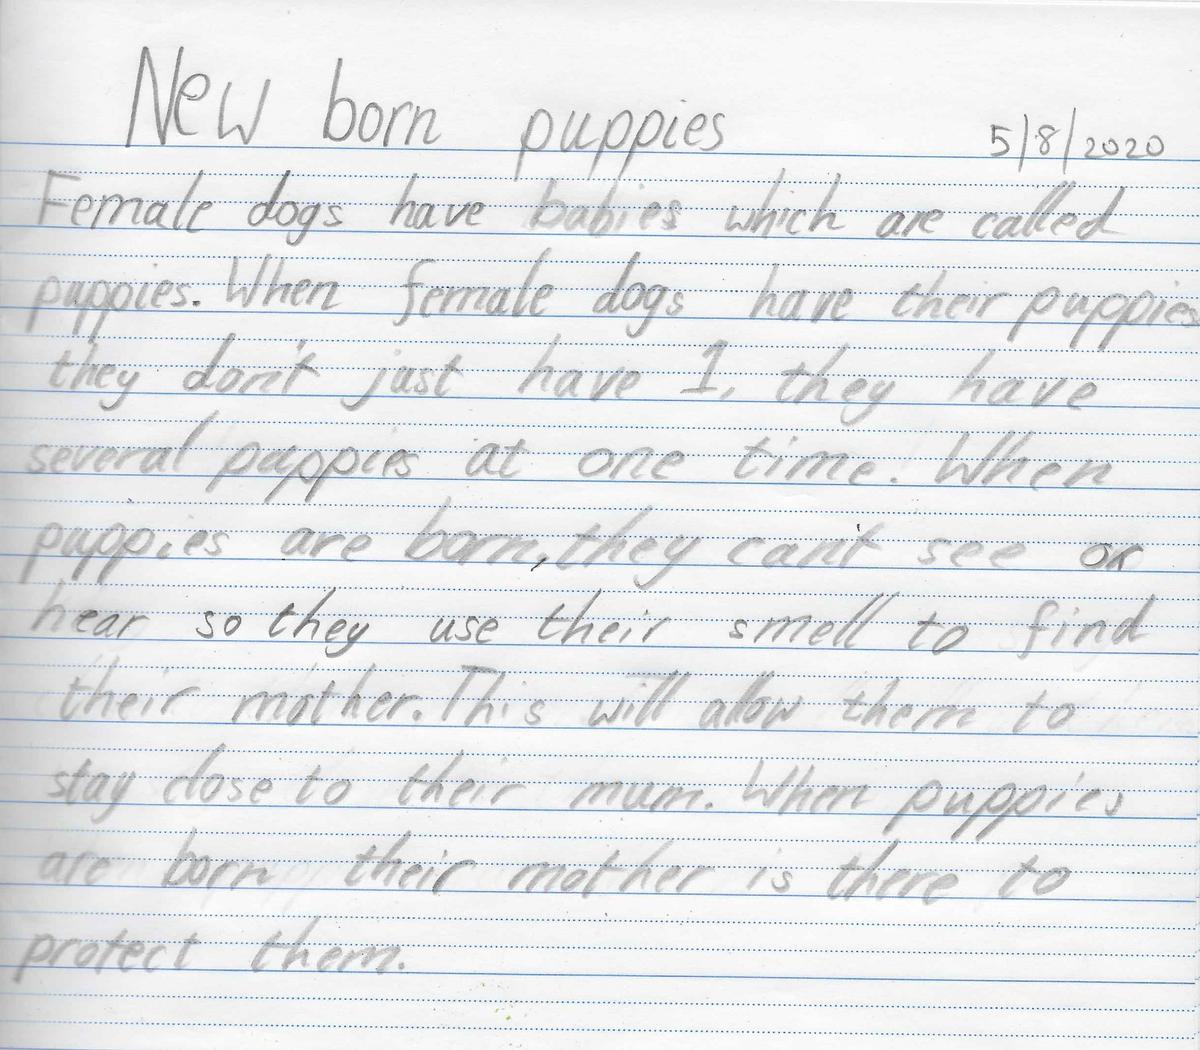 New born puppies 5/8/2020
Female dogs have babies which are called
puppies. When female dogs have their puppies
they don't just have 1, they have
several puppies at one time. When
puppies are born, they can't see or
hear so they use their smell to find
their mother. This will allow them to
stay close to their mum. When puppies
are born their mother is there to
protect them.